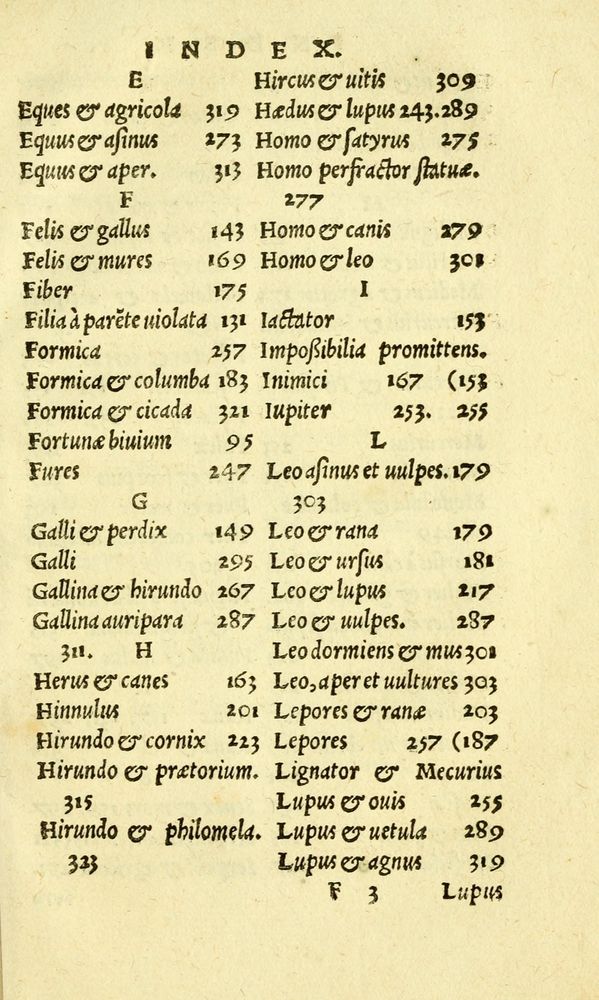 INDEX.
E
Eques & agricola 319
Equus & asinus 273
Equus & aper. 313
F
Felis & gallus 143
Felis & mures 169
Fiber 175
Filia à parẽte uiolata 131
Formica 257
Formica & columba 183
Formica & cicada 321
Fortunæ biuium 95
Fures 247
G
Galli & perdix 149
Galli 295
Gallina & hirundo 267
Gallina auripara 287
311. H
Herus & canes 163
Hinnulus 201
Hirundo & cornix 223
Hirundo & prætorium.
315
Hirundo & philomela.
323
Hircus & uitis 309
Hædus & lupus 243.289
Homo & satyrus 275
Homo perfractor statuæ.
277
Homo & canis 279
Homo & leo 301
I
Iactator 153
Impoßibilia promittens.
Inimici 167 (153
Iupiter 253. 255
L
Leo asinus et uulpes. 179
303
Leo & rana 179
Leo & ursus 181
Leo & lupus 217
Leo & uulpes. 287
Leo dormiens & mus 301
Leo, aper et uultures 303
Lepores & ranæ 203
Lepores 257 (187
Lignator & Mecurius
Lupus & ouis 255
Lupus & uetula 289
Lupus & agnus 319
F 3 Lupus